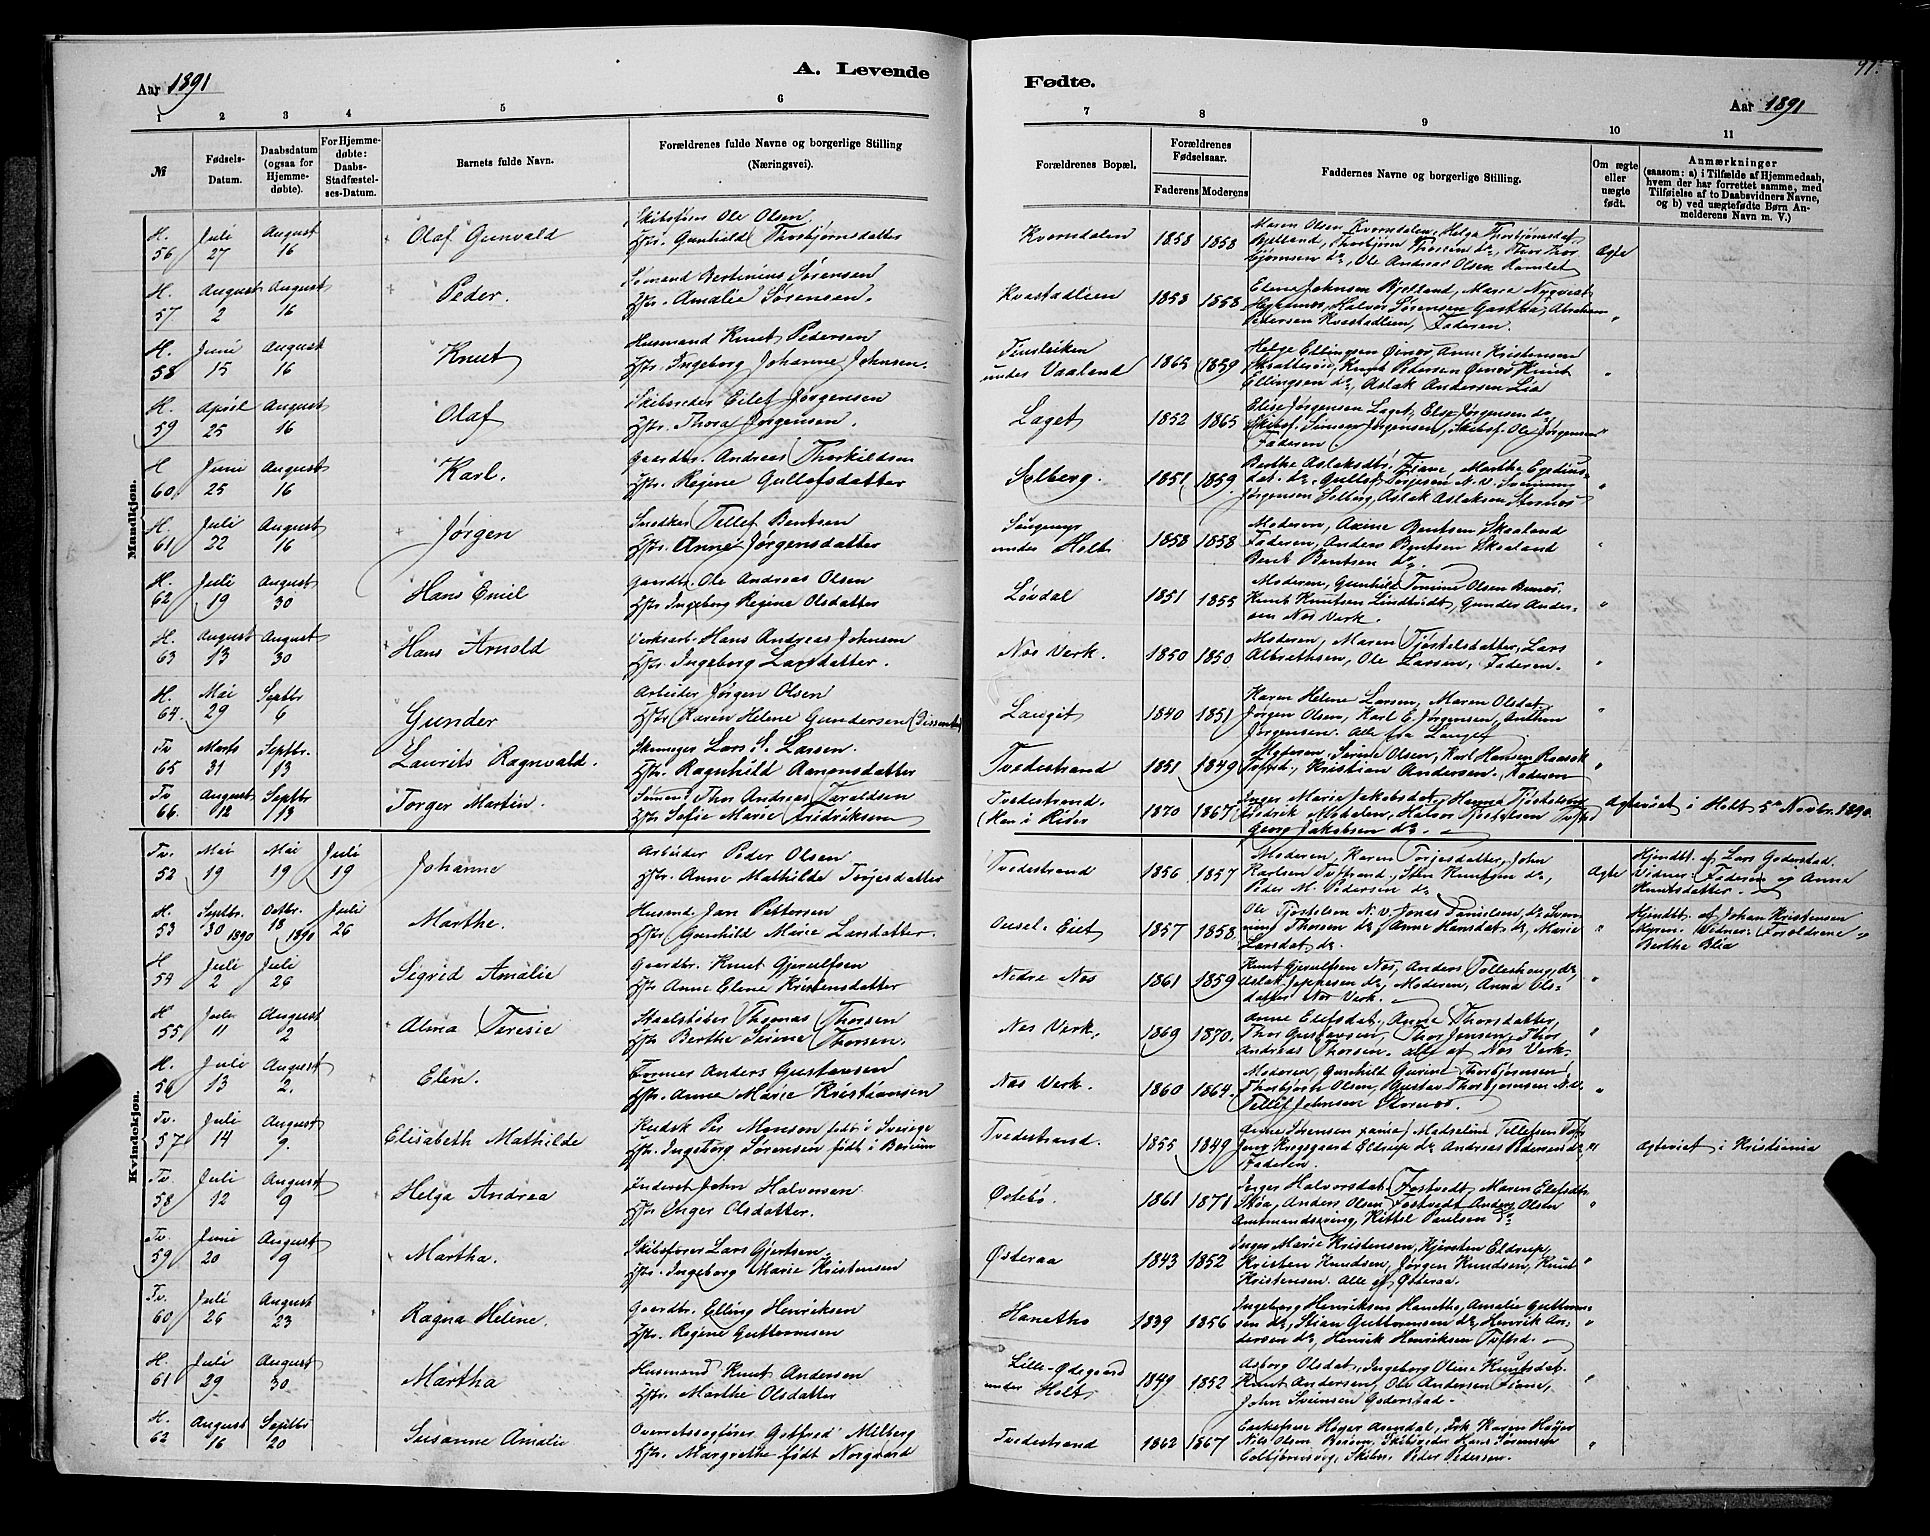 Aar 1891
A. Levende
Fødte.
97.
Aar 1891
1 2 3 4 5 6 7 8 9 10 11
№
Fødsels-
Datum.
Daabsdatum
(ogsaa for
Hjemme-
døbte).
For Hjemme-
døbte:
Daabs-
Stadfæstel-
ses-Datum.
Barnets fulde Navn.
Forældrenes fulde Navne og borgerlige Stilling
(Næringsvei).
Forældrenes Bopæl.
Forældrenes
Fødselsaar.
Faderens Moderens
Faddernes Navne og borgerlige Stilling.
Om ægte
eller
uægte
født.
Anmærkninger
(saasom: a) i Tilfælde af Hjemmedaab,
hvem der har forrettet samme, med
Tilføielse af to Daabsvidners Navne,
og b) ved uægtefødte Børn An-
melderens Navn m. V.)
Mandkjøn.
H. 56 Juli 27 August 16 Olaf Gunvald
Skibsfører Ole Olsen
Hstr. Gunhild Thorbjørnsdatter
Kvorndalen 1858 1858
Maren Olsen Kvorndalen, Helga Thorbjørnsdat.
Bjelland, Thorbjørn Thorsen do, Thor Thor-
bjørnsen do, Ole Andreas Olsen
Ægte
H. 57 August 2 August 16 Peder.
Sømand Bertinius Sørensen
Hstr. Amalie Sørensen.
Kvastadlien 1858 1858
Elene Johnsen Bjelland, Maria Nyqvist
Halvor Sørensen Abraham
Pedersen Kvastadlien, Faderen. "
H. 58 Juni 15 August 16 Knut
Husmand Knut Pedersen
Hstr. Ingeborg Johanne Johnsen.
under Vaaland 1865 1859
Helge Ellingsen Anne Kristensen
Knut Pedersen Knut
Ellingsen do, Aslak Andersen Lia "
H. 59 April 25 August 16 Olaf
Skibsreder Eilef Jørgensen
Hstr. Thora Jørgensen.
Laget 1852 1865
Elise Jørgensen Laget, Else Jørgensen do
Skibsf. Simon Jørgensen, Skibsf. Ole Jørgensen
Faderen "
H 60 Juni 25 August 16 Karl.
Gaardbr. Andreas Thorkildsen
Hstr. Regine Gullofsdatter
Selberg. 1851 1859
Berthe Aslaksdtr. Fiane, Marthe
dat. do, Gullof Torjesen N.V.
Jørgensen Selberg, Aslak Aslaksen "
H. 61 Juli 22 August 16 Jørgen
Snedker Tellef Bentsen
Hstr. Anne Jørgensdatter
under Holt 1858 1858
Moderen, Axine Bentsen Skaaland
Faderen, Anders Bentsen Skaaland
Bent Bentsen do. "
H. 62 Juli 19 August 30 Hans Emil
Gaardbr. Ole Andreas Olsen
Hstr. Ingeborg Regine Olsdatter
Løvdal 1851 1855
Moderen, Gunhild Tomine Olsen
Knut Knutsen Gunder Ander-
sen Nes Verk. "
H. 63 August 13 August 30 Hans Arnold
Verksarb. Hans Andreas Johnsen
Hstr. Ingeborg Larsdatter.
Nes Verk. 1850 1850
Moderen, Maren Tjøstelsdatter, Lars
Albrethsen, Ole Larsen, Faderen. "
H. 64 Mai 29 Septbr 6 Gunder
Arbeider Jørgen Olsen
Hstr. Karen Helene Gundersen (Dissenter)
Lauget 1840 1851
Karen Helene Larsen, Maren Olsdat,
Jørgen Olsen, Karl E. Jørgensen, Anthon
Jørgensen. Alle fra Lauget "
Tv 65 Marts 31 Septbr. 13 Laurits Ragnvald.
Lars S. Larsen.
Hstr. Ragnhild Aanonsdatter
Tvedestrand 1851 1849
Moderen, Serine Olsen, Karl Hansen
Tvstd., Kristian Andersen, Faderen "
Tv 66. August 12 Septbr 13 Torger Martin.
Sømand Thor Andreas Taraldsen
Hstr Sofie Marie Fredriksen
Tvedestrand.
(Han i Risør 1870 1867
Inger Marie Jakobsdat, Hanna Tjøstelsen
Fredrik Halvor Tjøstelsen Tvstd
Georg Jakobsen do.
Ægteviet i Holt 5te Novbr. 1890.
Kvindekjøn.
Tv. 52 Mai 19 Mai 19 Juli 19 Johanne
Arbeider Peder Olsen
Hstr. Anne Mathilde Torjesdatter
Tvedestrand 1856 1857
Moderen, Karen Torjesdatter, John
Karlsen Tvstrand, Sten Knutsen do,
Peder M. Pedersen do
Ægte
Hjmdbt. af Lars Goderstad.
Vidner: Faderen og Anna
Knutsdatter.
H. 53 Septbr. 30 1890 Octbr. 18 1890 Juli 26 Marthe.
Husmd. Jens Pettersen
Hstr Gunhild Marie Larsdatter.
Ousel. Eiet 1857 1858
Ole Tjøstelsen N.V. Jonas Danielsen, do
Thorsen do, Anne Hansdat do, Marie
Larsdat do. "
Hjmdbt. af Johan Kristensen
Vidner: Forældrene
Berthe Blia
H 54 Juli 2 Juli 26 Sigrid Amalie
Gaardbr. Knut Gjerulfsen
Hstr Anne Elene Kristensdatter
Nedre Nes 1861 1859
Knut Gjerulfsen Nes, Anders do,
Aslak Jeppesen do, Moderen, Anna Ols-
datter Nes Verk. "
H 55 Juli 11 August 2 Alma Teresie
Staalstøber Thomas Thorsen
Hstr Berthe Serine Thorsen.
Nes Verk. 1869 1870.
Anne Elefsdat., Anne Thorsdatter,
Thor Gustavsen, Thor Jensen, Thor
Andreas Thorsen. alle af Nes Verk. "
H. 56 Juli 13 August 2. Elen.
Former Anders Gustavsen
Hstr. Anne Marie Kristiansen
Nes Verk. 1860 1864.
Moderen, Gunhild Gurine Thorbjørnsen,
Thorbjørn Olsen, Gustav Thorbjørnsen N.V.
Tellef Johnsen "
Tv. 57 Juli 14 August 9. Elisabeth Mathilde
Kudsk Per Monson født i Sverige
Hstr. Ingeborg Sørensen født i Berium
Tvedestrand. 1855 1849
Anne Sørensen Medseline Tellefsen Tvs
Jens Krogsgaard Eldrup do Andreas Pedersen do
Faderen. "
Ægteviet i Kristiania
Tv 58 Juli 12 August 9 Helga Andrea
Inderst John Halvorsen
Hstr Inger Olsdatter.
Østebø. 1861 1871
Inger Halvorsdat. Fostvedt, Maren Elefsdtr.
Anders Olsen Fostvedt, Anders Olsen
Amtmandssving, Kittel Paulsen do "
Tv. 59 Juni 20 August 9 Martha.
Skibsfører Lars Gjertsen
Hstr. Ingeborg Marie Kristensen
Østeraa 1843 1852
Inger Marie Kristensen, Kjersten Eldrup,
Kristen Knudsen, Jørgen Knudsen, Knut
Kristensen. Alle af Østeraa. "
Tv. 60 Juli 26 August 23 Ragna Helene.
Gaardbr. Elling Henriksen
Hstr. Regine Guttormsen
Hanetho 1839 1856
Ingeborg Henriksen Hanetho, Amalie Guttorm-
sen do, Stian Guttormsen do, Henrik An-
dersen do, Henrik Henriksen Tvstsd. "
H. 61 Juli 29 August 30 Martha
Husmand Knut Andersen
Hstr. Marthe Olsdatter
Lille-Ødegaard
under Holt 1849 1852
Asborg Olsdat, Ingeborg Oline Knutsdat.
Knut Andersen, Ole Andersen Fiane,
John Svensen Goderstad. "
H. 62 August 16 Septbr 20 Susanne Amalie
Overretssagfører Gotfred Milberg
Hstr. Margrethe født Norgaard
Tvedestrand 1862 1867
Enkefrue Høyer Arendal, Frk Karen Høyer
Nils Olsen Skibsreder Hans Sørensen
Peder Pedersen. "